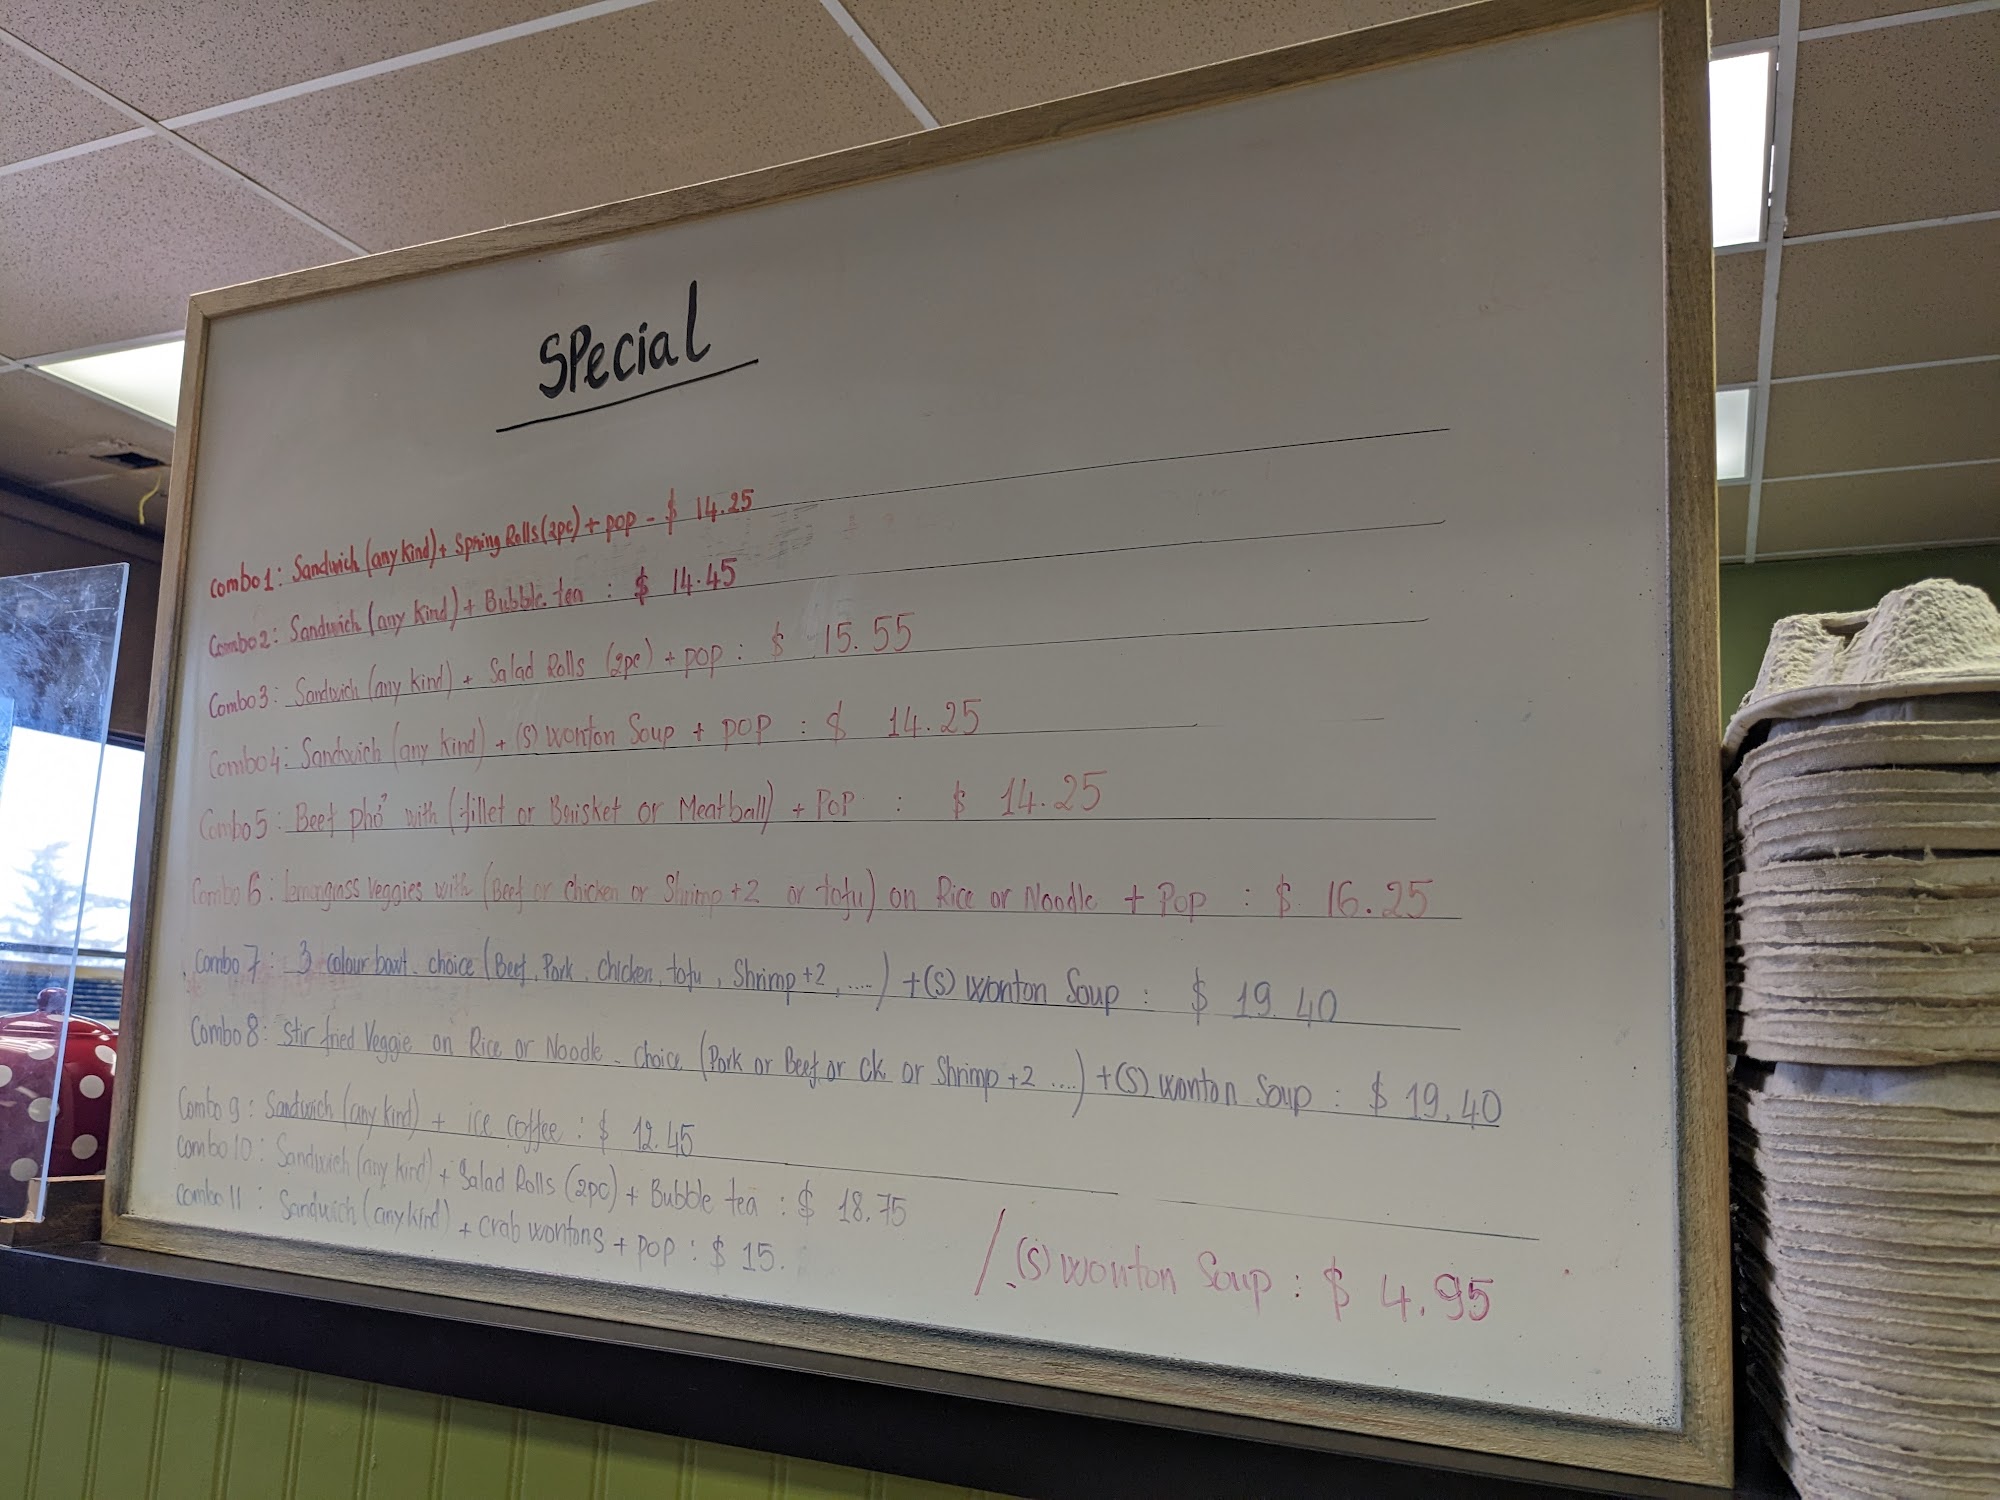 SPecial
Combo 1: Sandwich (any kind) + Spring Rolls (2pc) + pop - $ 14.25
Combo 2: Sandwich (any kind) + Bubble tea : $ 14.45
Combo 3: Sandwich (any kind) + Salad Rolls (2pc) + pop : $ 15.55
Combo 4: Sandwich (any kind) + (S) wonton Soup + pop : $ 14.25
Combo 5: Beef phở with (fillet or Brisket or Meatball) + Pop : $ 14.25
Combo 6: lemongrass Veggies with (Beef or chicken or Shrimp +2 or tofu) on Rice or Noodle + Pop : $ 16.25
Combo 7: 3 colour bowl. choice (Beef, Pork, Chicken, tofu, Shrimp +2, ....) + (S) wonton Soup : $ 19.40
Combo 8: Stir fried Veggie on Rice or Noodle - choice (Pork or Beef or CK or Shrimp +2 ....) + (S) wonton Soup : $ 19.40
Combo 9: Sandwich (any kind) + ice coffee : $ 12.45
Combo 10: Sandwich (any kind) + Salad Rolls (2pc) + Bubble tea : $ 18.75
Combo 11: Sandwich (any kind) + crab wontons + pop : $ 15.
/ (S) wonton Soup : $ 4.95